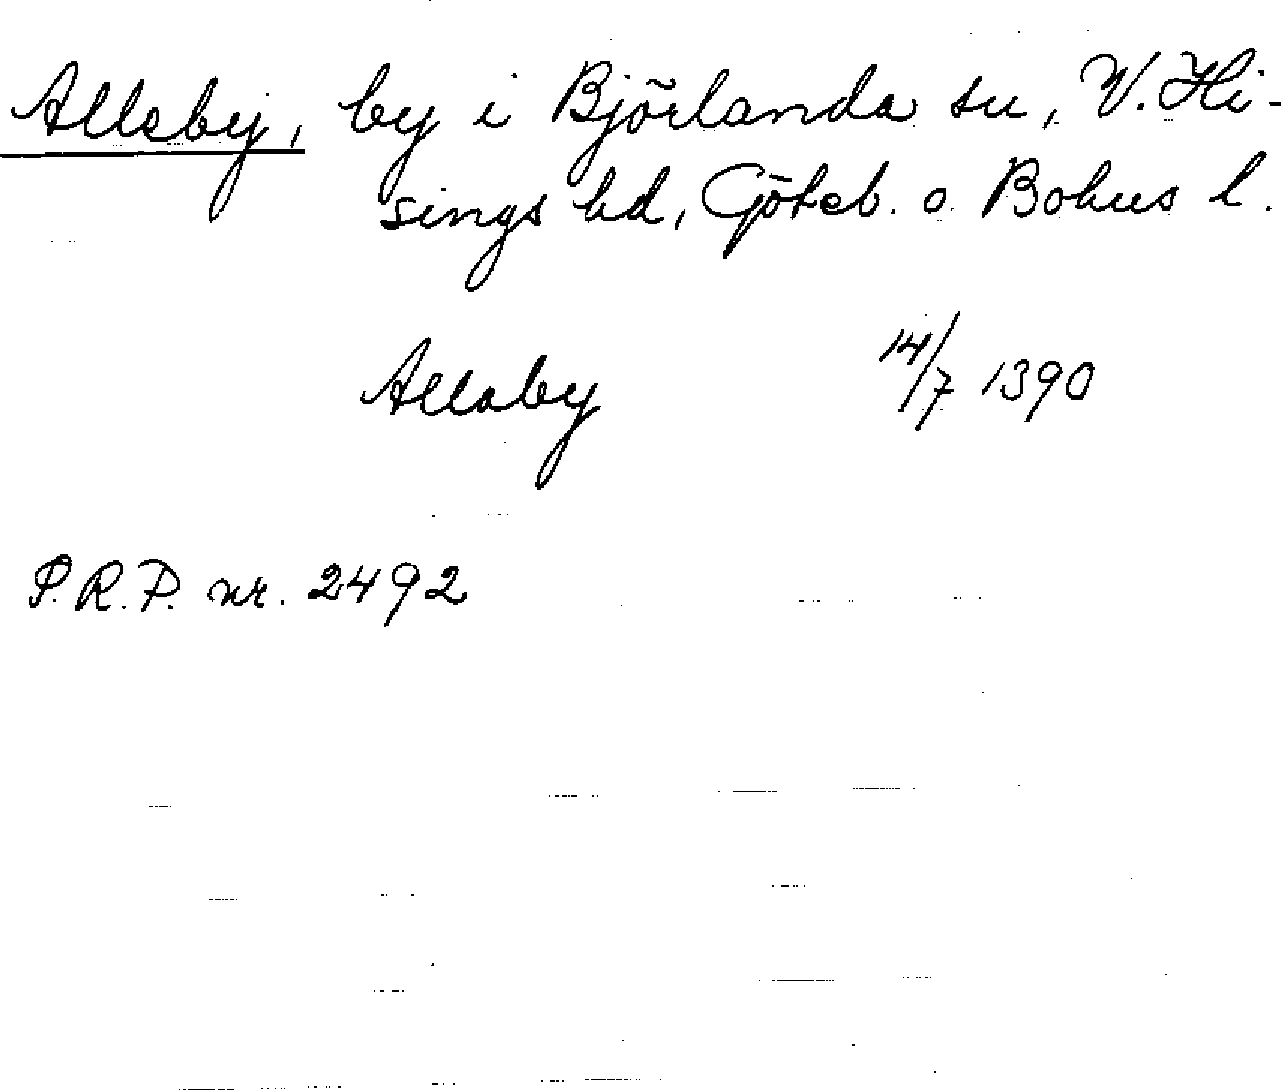 Alleby, by i Björlanda sn, V. Hi-
sings hd, Göteb. o. Bohus l.
Allaby 14/7 1390
P.R.P. nr. 2492